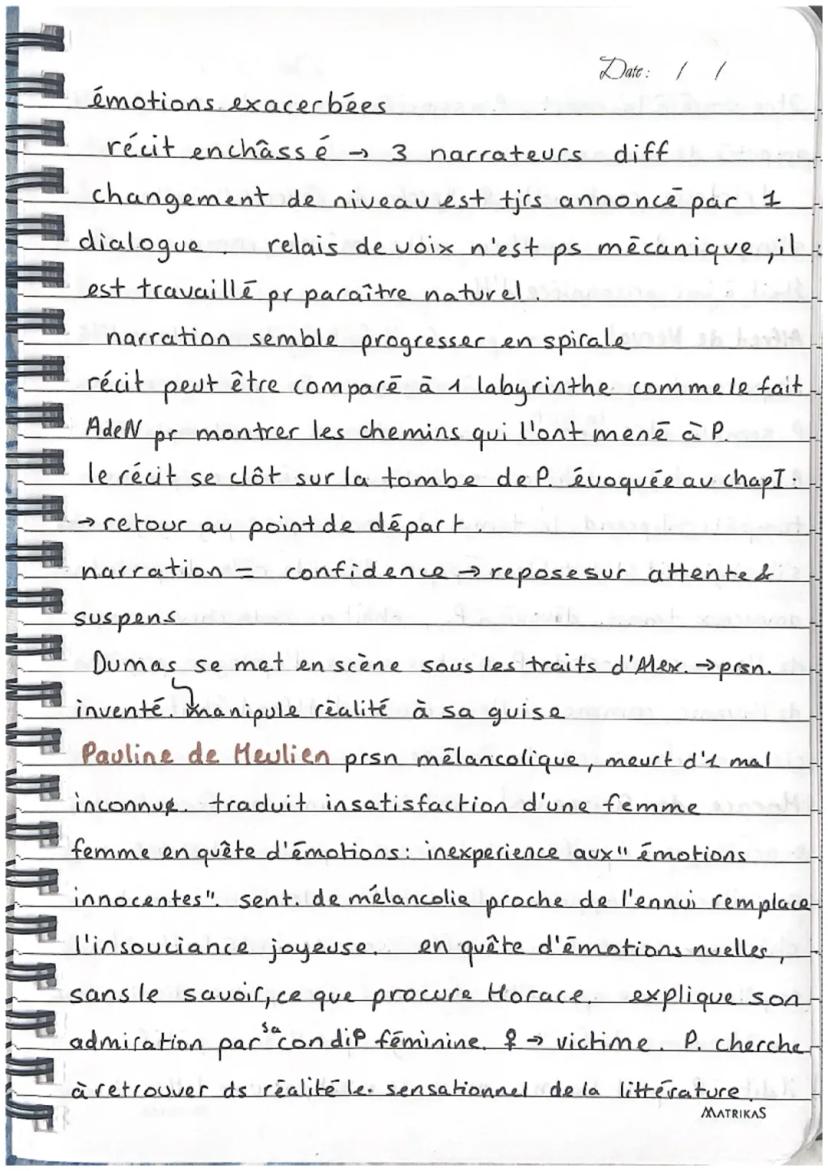 Date: / /
émotions exacerbées
récit enchâssé → 3 narrateurs diff
changement de niveau est tjrs annoncé par 1
dialogue. relais de voix n'est ps mécanique, il
est travaillé pr paraître naturel.
narration semble progresser en spirale
récit peut être comparé à 1 labyrinthe comme le fait
AdeN pr montrer les chemins qui l'ont mené à P.
le récit se clôt sur la tombe de P. évoquée au chap I.
→ retour au point de départ.
narration = confidence → repose sur attente &
suspens
Dumas se met en scène sous les traits d'Alex. → prsn.
inventé. manipule réalité à sa guise
Pauline de Meulien prsn mélancolique, meurt d'1 mal
inconnu traduit insatisfaction d'une femme
femme en quête d'émotions: inexperience aux "émotions
innocentes". sent. de mélancolie proche de l'ennui remplace
l'insouciance joyeuse. en quête d'émotions nuelles,
sans le savoir, ce que procure Horace, explique son
admiration par sa condiº féminine. ♀ → victime. P. cherche
à retrouver ds réalité le sensationnel de la littérature.
MATRIKAS